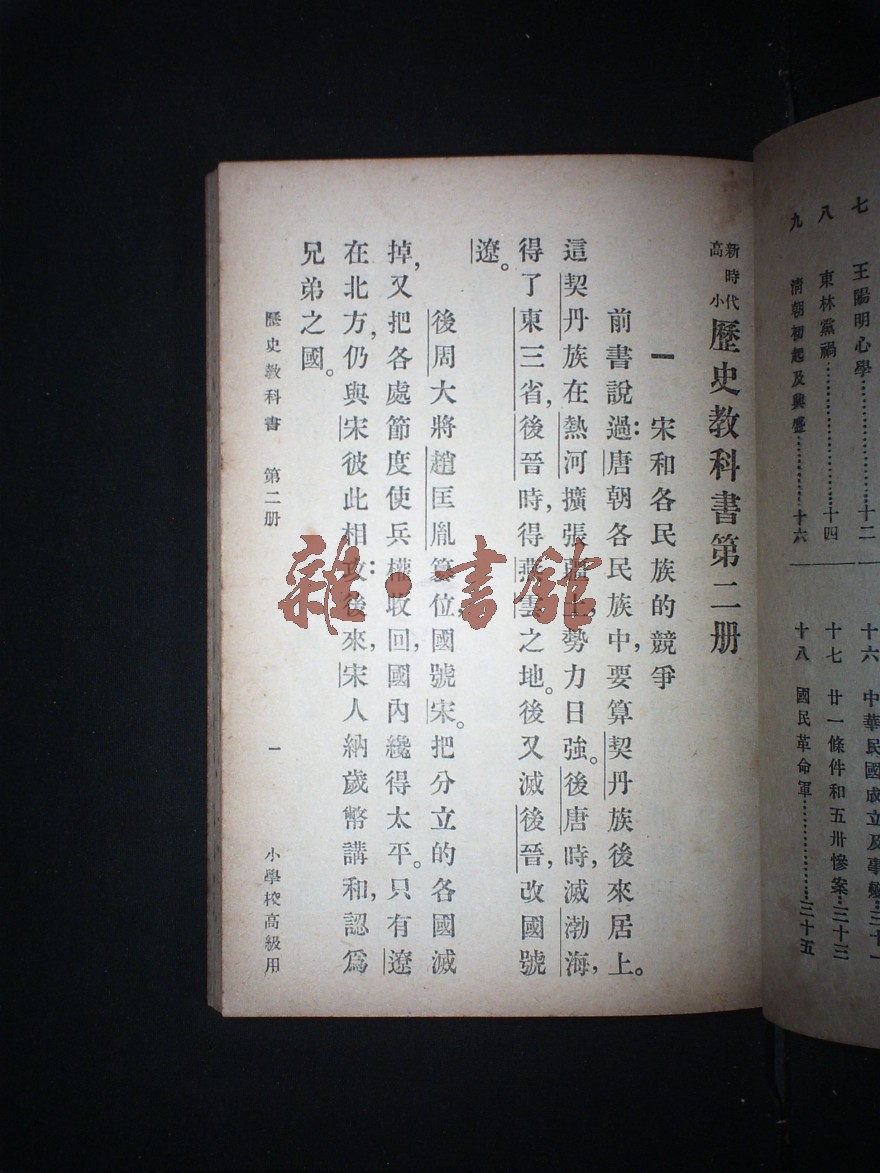 七　王陽明心學………十二
八　東林黨禍………十四
九　清朝初起及興盛………二十六
十六　中華民國成立及事變…三十一
十七　廿一條件和五卅慘案…三十三
十八　國民革命軍………三十五
新時代高小歷史教科書第二册
一　宋和各民族的競爭
前書說過：唐朝各民族中，要算契丹族後來居上。
這契丹族在熱河擴張疆土，勢力日強。後唐時，滅渤海，
得了東三省，後晉時，得燕雲之地。後又滅後晉，改國號
遼。
後周大將趙匡胤篡位，國號宋。把分立的各國滅
掉，又把各處節度使兵權收回，國內纔得太平。只有遼
在北方，仍與宋彼此相攻：後來，宋人納歲幣講和，認爲
兄弟之國。
歷史教科書　第二册　一　小學校高級用
雜·書館